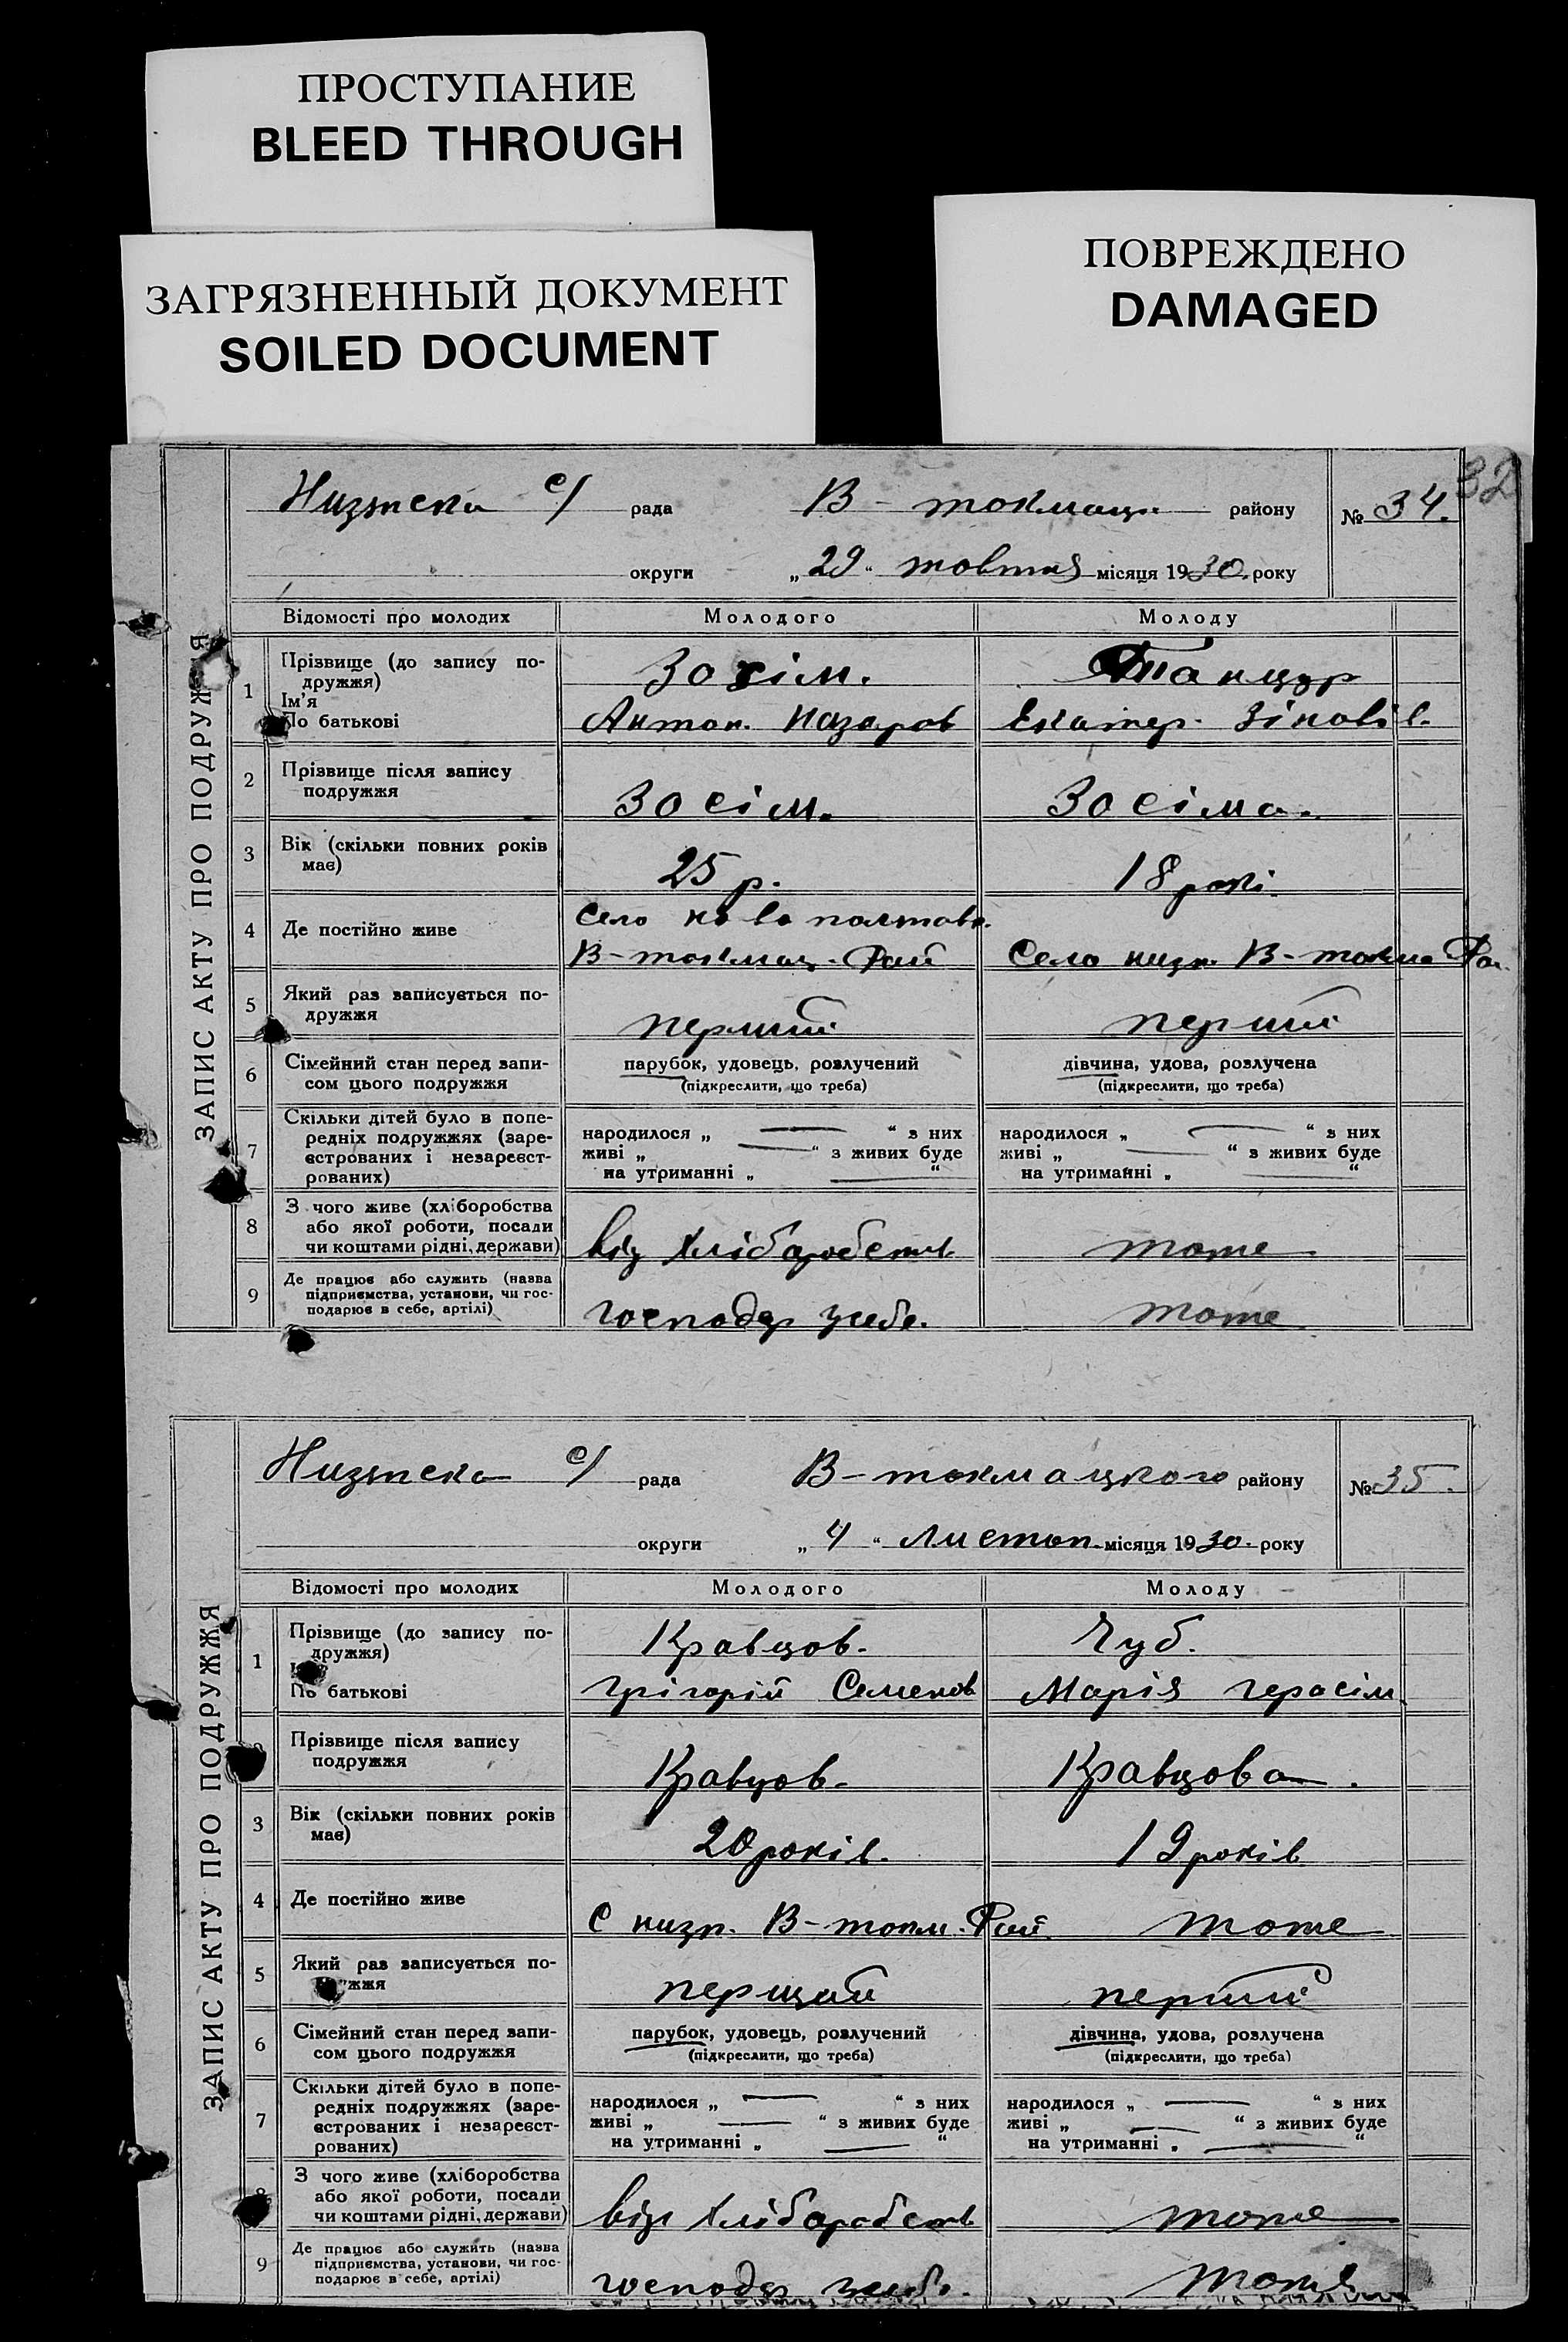 ПРОСТУПАНИЕ
BLEED THROUGH
ЗАГРЯЗНЕННЫЙ ДОКУМЕНТ
SOILED DOCUMENT
ПОВРЕЖДЕНО
DAMAGED
32
ЗАПИС АКТУ ПРО ПОДРУЖЖЯ
с/ рада В- токмацьк району № 34.
округи „29“ жовтня місяця 1930. року
Відомості про молодих Молодого Молоду
1 Прізвище (до запису по-
дружжя)
Ім’я
По батькові
Зосім. Танцюр
Антон. Назаров Екатер. Зіновів.
2 Прізвище після запису
подружжя
Зосім. Зосіма.
3 Вік (скільки повних років
має)
25 р. 18 рокі.
4 Де постійно живе
Село ново полтав.
В-токмац. Рай Село низян. В-токма Ра.
5 Який раз записується по-
дружжя
перший перший
6 Сімейний стан перед запи-
сом цього подружжя
парубок, удовець, розлучений дівчина, удова, розлучена
(підкреслити, що треба) (підкреслити, що треба)
7 Скільки дітей було в попе-
редніх подружжях (заре-
єстрованих і незареєст-
рованих)
народилося „ — “ з них народилося „ — “ з них
живі „ — “ з живих буде живі „ — “ з живих буде
на утриманні „ — “ на утриманні „ — “
8 З чого живе (хліборобства
або якої роботи, посади
чи коштами рідні, держави)
від хліборобств тоже
9 Де працює або служить (назва
підприємства, установи, чи гос-
подарює в себе, артілі)
господар усебе. тоже
ЗАПИС АКТУ ПРО ПОДРУЖЖЯ
с/ рада В-токмацкого району № 35.
округи „4“ листоп. місяця 1930. року
Відомості про молодих Молодого Молоду
1 Прізвище (до запису по-
дружжя)
По батькові
Кравцов. Чуб.
Грігорій Семенов Марія Герасім
Прізвище після запису
подружжя
Кравцов. Кравцова.
3 Вік (скільки повних років
має)
20 років. 19 років
4 Де постійно живе
С низян. В-токм. Рай. тоже
5 Який раз записується по-
жжя
перщий перший
6 Сімейний стан перед запи-
сом цього подружжя
парубок, удовець, розлучений дівчина, удова, розлучена
(підкреслити, що треба) (підкреслити, що треба)
7 Скільки дітей було в попе-
редніх подружжях (заре-
єстрованих і незареєст-
рованих)
народилося „ — “ з них народилося „ — “ з них
живі „ — “ з живих буде живі „ — “ з живих буде
на утриманні „ — “ на утриманні „ — “
8 З чого живе (хліборобства
або якої роботи, посади
чи коштами рідні, держави)
від хліборобств тоже
9 Де працює або служить (назва
підприємства, установи, чи гос-
подарює в себе, артілі)
господар усебе. тоже